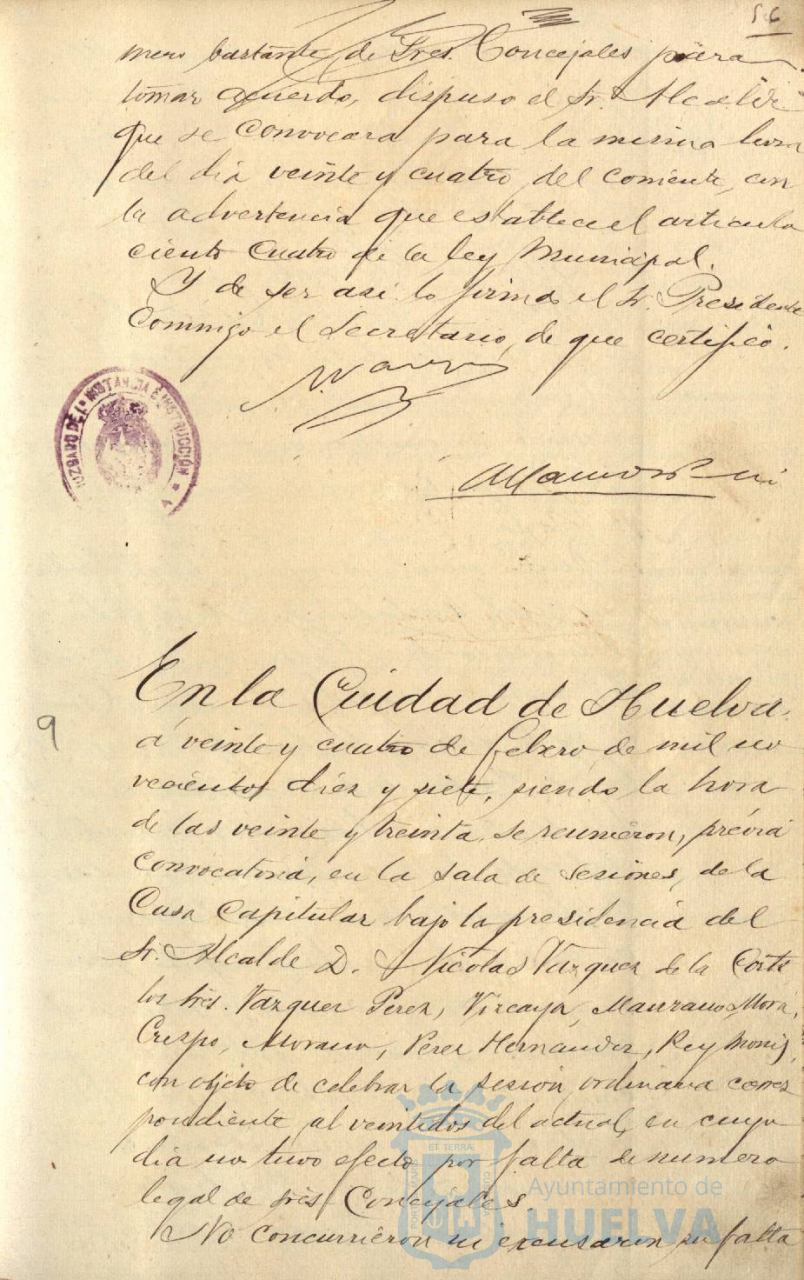 56
mero bastante de Sres. Concejales para
tomar acuerdo, dispuso el Sr. Alcalde
que se convocara para la misma hora
del dia veinte y cuatro del corriente, con
la advertencia que establece el articulo
ciento cuatro de la ley Municipal.
Y de ser asi lo firma el Sr. Presidente
Conmigo el Secretario, de que certifico.
JUZGADO DE 1ª INSTANCIA E INSTRUCCIÓN
9
En la Ciudad de Huelva,
á veinte y cuatro de febrero, de mil no
vecientos diez y siete, siendo la hora
de las veinte y treinta, se reunieron, prévia
convocatoria, en la sala de sesiones, de la
Casa Capitular bajo la presidencia del
Sr. Alcalde D. Nicolas Vázquez de la Corte
los Sres. Vázquez Perez, Vizcaya, Manzano, Mora,
Crespo, Morano, Perez Hernández, Rey Monis,
con objeto de celebrar la sesión ordinaria corres
pondiente al veintidos del actual, en cuyo
dia no tuvo efecto por falta de número
legal de Sres Concejales.
No concurrieron ni excusaron su falta
Ayuntamiento de
HUELVA